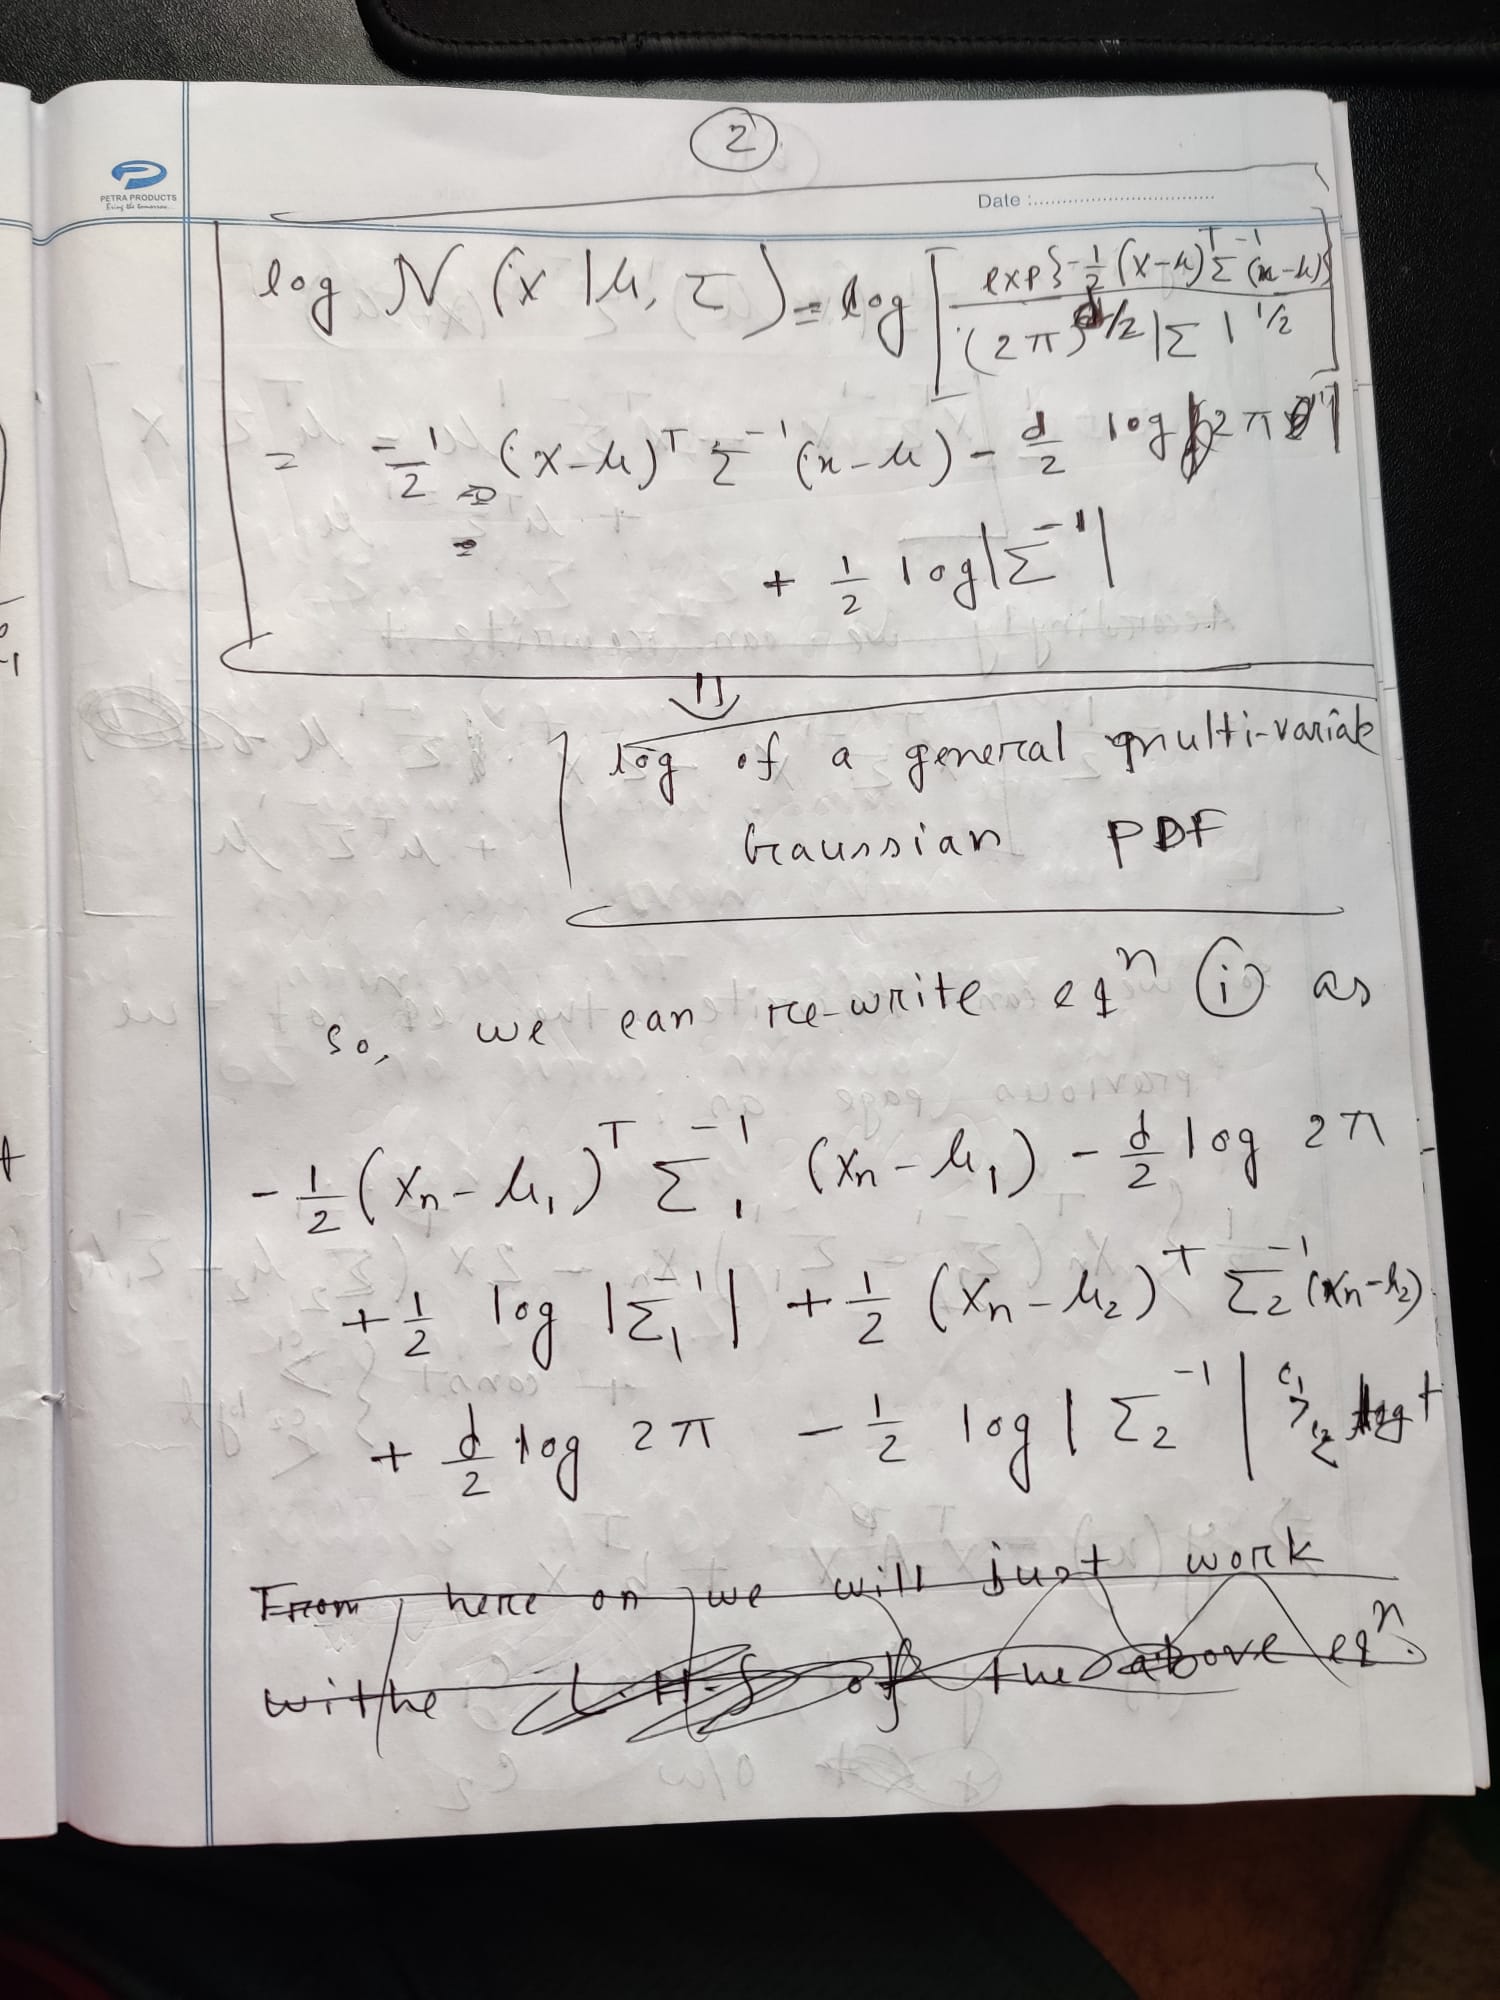 2
PETRA PRODUCTS
Bring the tomorrow...
Date :
log N (x | μ, Σ) = log [ exp{ -1/2 (x-μ)^T Σ^-1 (x-μ)} / (2π)^d/2 |Σ|^1/2 ]
= -1/2 (x-μ)^T Σ^-1 (x-μ) - d/2 log 2π
+ 1/2 log |Σ^-1|
⇓
log of a general multi-variate
Gaussian PDF
so, we can re-write eq^n (i) as
-1/2 (x_n - μ_1)^T Σ_1^-1 (x_n - μ_1) - d/2 log 2π
+ 1/2 log |Σ_1^-1| + 1/2 (x_n - μ_2)^T Σ_2^-1 (x_n - μ_2)
+ d/2 log 2π - 1/2 log |Σ_2^-1| >^{c_1}_{c_2} log t
From here on we will just work
withe L.H.S of the above eq^n.